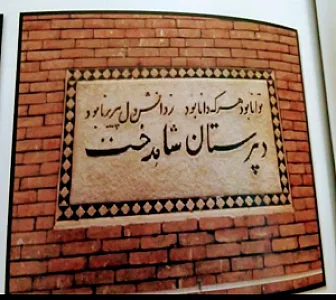 توانا بود هر که دانا بود ز دانش دل پیر برنا بود
دبیرستان شاهدخت